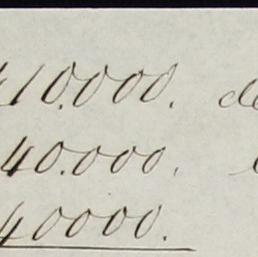 410.000. de
40.000.
40000.